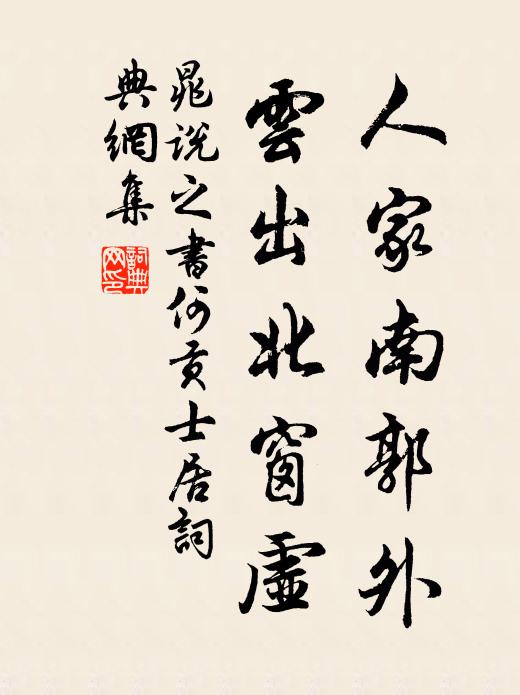 人家南郭外
雲出北窗虛
晁說之書何貢士居詞
典網集
詞典網印